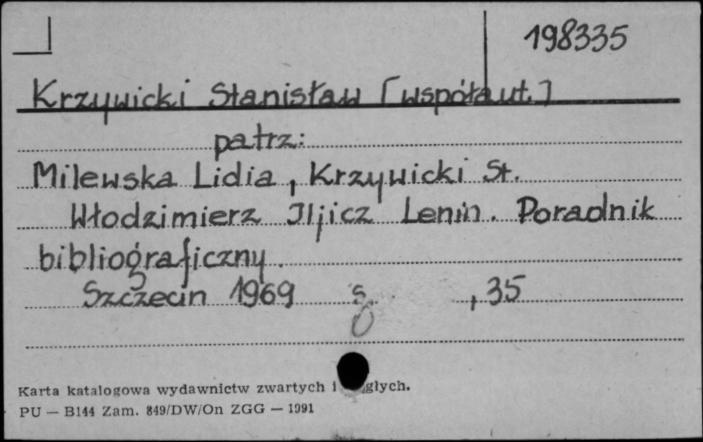 198335
Krzywicki Stanisław [współaut.]
patrz:
Milewska Lidia, Krzywicki St.
Włodzimierz Iljicz Lenin. Poradnik
bibliograficzny.
Szczecin 1969 s. , 35
Karta katalogowa wydawnictw zwartych i głych.
PU — B144 Zam. 849/DW/On ZGG — 1991